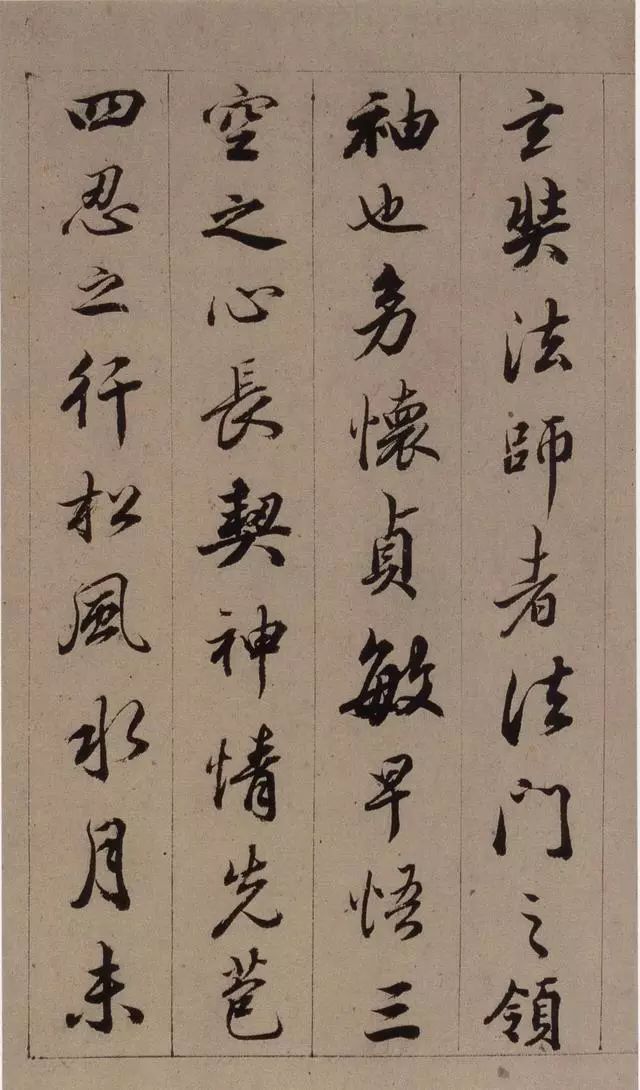 玄奘法師者法門之領
袖也幼懷貞敏早悟三
空之心長契神情先苞
四忍之行松風水月未